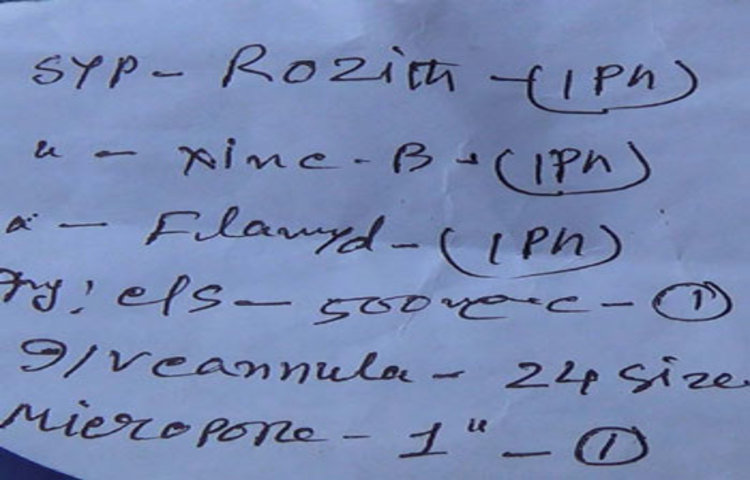 SYP - Rozith - (1 Ph)
" - xinc-B - (1Ph)
" - Filamyd - (1 Ph)
Inj: C/S - 500 - 1
I/V cannula - 24 size
Micropore - 1" - 1